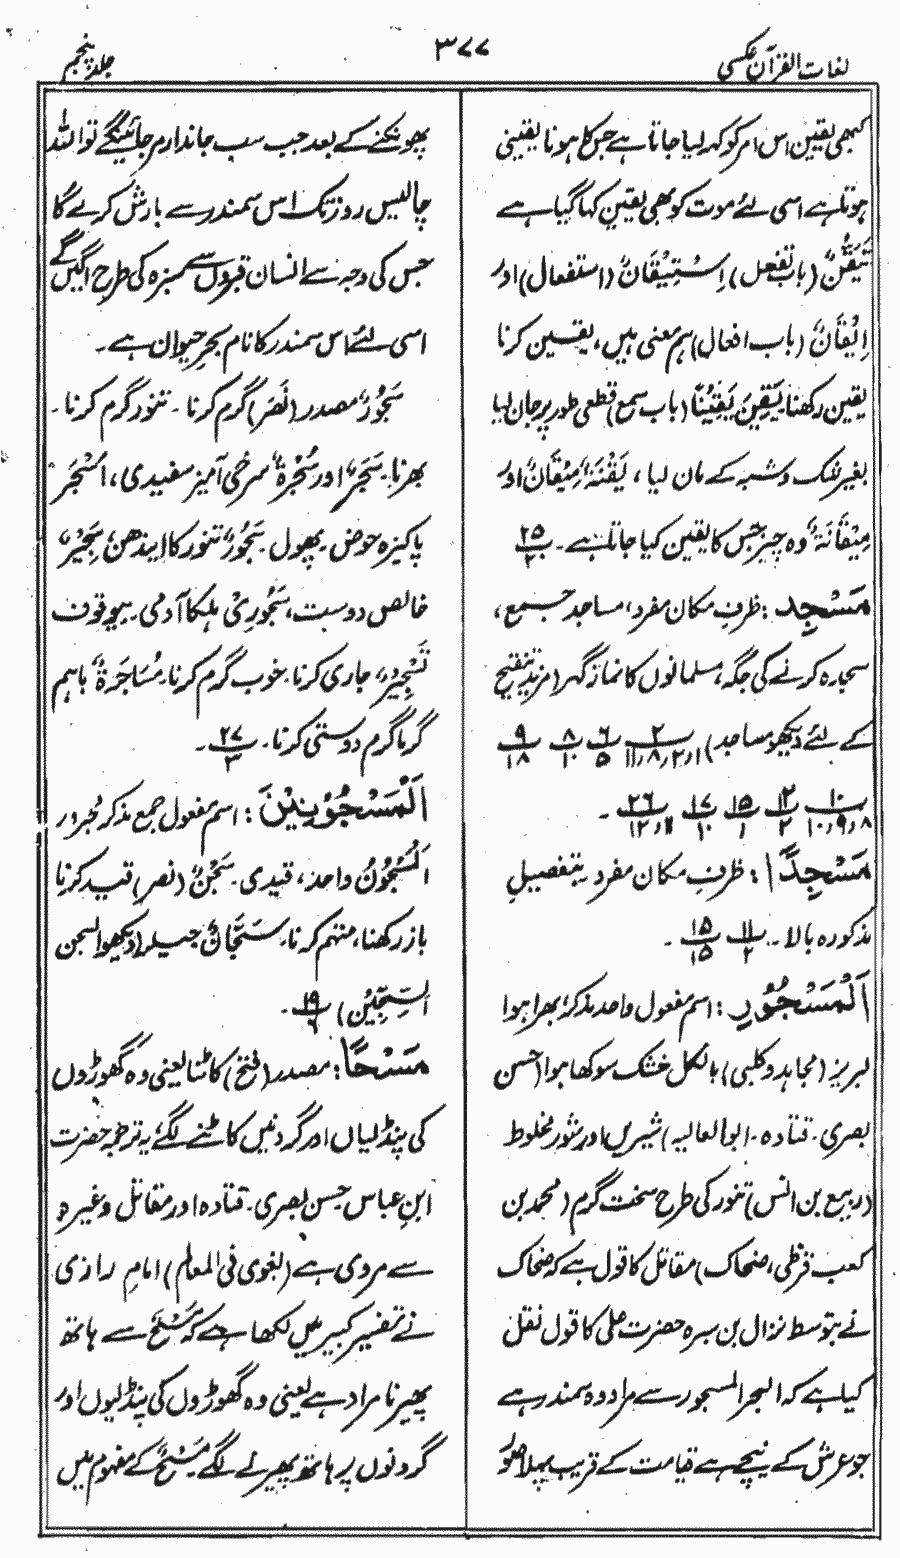 لغات القرآن عکسی
۳۷۷
جلد پنجم
کبھی یقین اس امر کو کہہ لیا جاتا ہے جس کا ہونا یقینی
ہوتا ہے اسی لئے موت کو بھی یقین کہا گیا ہے
تَيَقُّنٌ (باب تفعل) اِسْتِيْقَانٌ (استفعال) اور
اِيْقَانٌ (باب افعال) ہم معنی ہیں، یقین کرنا
یقین رکھنا يَقِنَ يَقِيْنًا (باب سمع) قطعی طور پر جان لیا
بغیر شک و شبہ کے مان لیا، يَقْنَةٌ مِيْقَانٌ اور
مِيْقَانَةٌ وہ چیز جس کا یقین کیا جاتا ہے۔ ۲۵/۲
مَسْجِد : ظرف مکان مفرد، مساجد جمع،
سجدہ کرنے کی جگہ، مسلمانوں کا نماز گھر (مزید تنقیح
کے لئے دیکھو مساجد) ۲/۱،۲،۸،۱۱ ۶/۵ ۸/۱۰ ۹/۱۸
۱۰/۸،۹،۱۰ ۱۲/۲ ۱۵/۱ ۱۷/۱۰ ۲۶/۱۱،۱۲ ۔
مَسْجِدًا : ظرف مکان مفرد۔ بتفصیل
مذکورہ بالا۔ ۱۱/۲ ۱۵/۱۵ ۔
اَلْمَسْجُوْرِ : اسم مفعول واحد مذکر، بھرا ہوا
لبریز (مجاہد و کلبی) بالکل خشک سوکھا ہوا (حسن
بصری۔ قتادہ۔ ابوالعالیہ) شیریں اور شور مخلوط
(ربیع بن انس) تنور کی طرح سخت گرم (محمد بن
کعب قرظی، ضحاک) مقاتل کا قول ہے کہ ضحاک
نے بتوسط نزال بن سبرہ حضرت علی کا قول نقل
کیا ہے کہ البحر المسجور سے مراد وہ سمندر ہے
جو عرش کے نیچے ہے قیامت کے قریب پہلا صور
پھونکنے کے بعد جب سب جاندار مرجائینگے تو اللہ
چالیس روز تک اس سمندر سے بارش کرے گا
جس کی وجہ سے انسان قبروں سے سبزہ کی طرح اگیں گے
اسی لئے اس سمندر کا نام بحر حیوان ہے۔
سَجُوْرٌ مصدر (نَصَرَ) گرم کرنا۔ تنور گرم کرنا۔
بھرنا۔ سَجَرٌ اور سُجْرَةٌ سرخی آمیز سفیدی، اَسْجَر
پاکیزہ حوض۔ پھول۔ سَجُوْرٌ تنور کا ایندھن، سَجِيْرٌ
خالص دوست، سَجُوْرِیْ ہلکا آدمی۔ بیوقوف
تَسْجِيْر، جاری کرنا۔ خوب گرم کرنا۔ مُسَاجَرَةٌ باہم
گرما گرم دوستی کرنا۔ ۲۷/۳ ۔
اَلْمَسْجُوْنِيْنَ : اسم مفعول جمع مذکر مجرور
اَلْمَسْجُوْنُ واحد، قیدی۔ سَجْنٌ (نصر) قید کرنا
باز رکھنا، متہم کرنا، سَجَّانٌ جیلر (دیکھو السجن
السِّجِّيْن) ۱۹/۶ ۔
مَسْحًا : مصدر (فتح) کاٹنا یعنی وہ گھوڑوں
کی پنڈلیاں اور گردنیں کاٹنے لگے، یہ ترجمہ حضرت
ابن عباس حسن بصری۔ قتادہ اور مقاتل وغیرہ
سے مروی ہے (لبغوی فی المعالم) امام رازی
نے تفسیر کبیر میں لکھا ہے کہ مَسْحٌ سے ہاتھ
پھیرنا مراد ہے یعنی وہ گھوڑوں کی پنڈلیوں اور
گردنوں پر ہاتھ پھیرنے لگے مَسْحٌ کے مفہوم میں